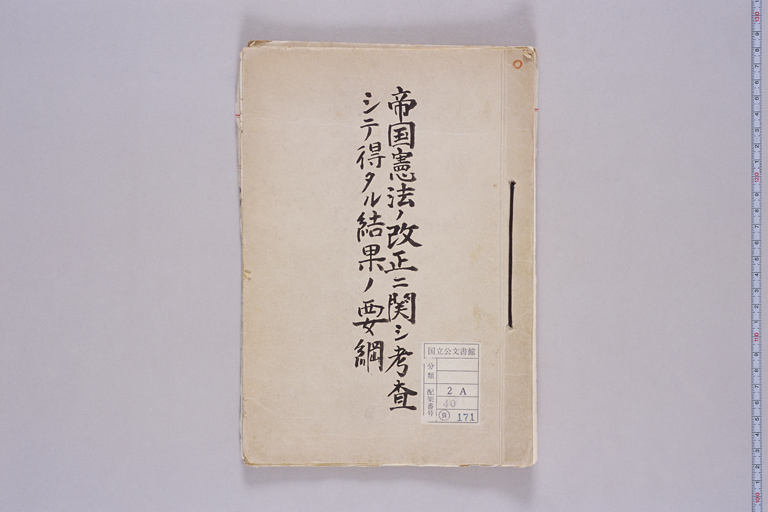 帝国憲法ノ改正ニ関シ考査
シテ得タル結果ノ要綱
国立公文書館
分類
配架番号
2 A
40
171